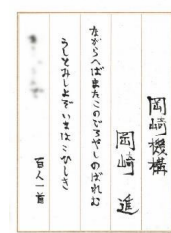 岡崎機構
岡崎 進
ながらへばまたこのごろやしのばれむ
うしとみしよぞいまはこひしき
百人一首